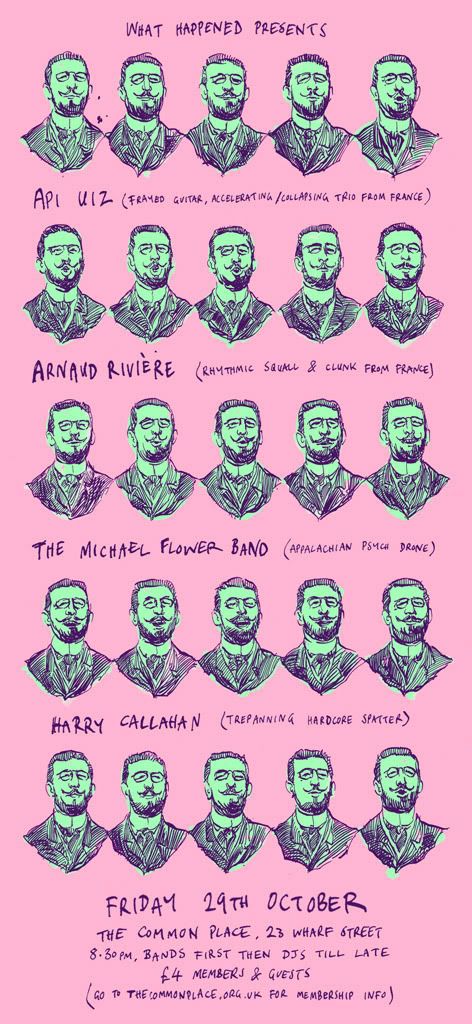 WHAT HAPPENED PRESENTS
API UIZ (FRAYED GUITAR, ACCELERATING/COLLAPSING TRIO FROM FRANCE)
ARNAUD RIVIÈRE (RHYTHMIC SQUALL & CLUNK FROM FRANCE)
THE MICHAEL FLOWER BAND (APPALACHIAN PSYCH DRONE)
HARRY CALLAHAN (TREPANNING HARDCORE SPATTER)
FRIDAY 29TH OCTOBER
THE COMMON PLACE, 23 WHARF STREET
8.30PM, BANDS FIRST THEN DJS TILL LATE
£4 MEMBERS & GUESTS
(GO TO THECOMMONPLACE.ORG.UK FOR MEMBERSHIP INFO)